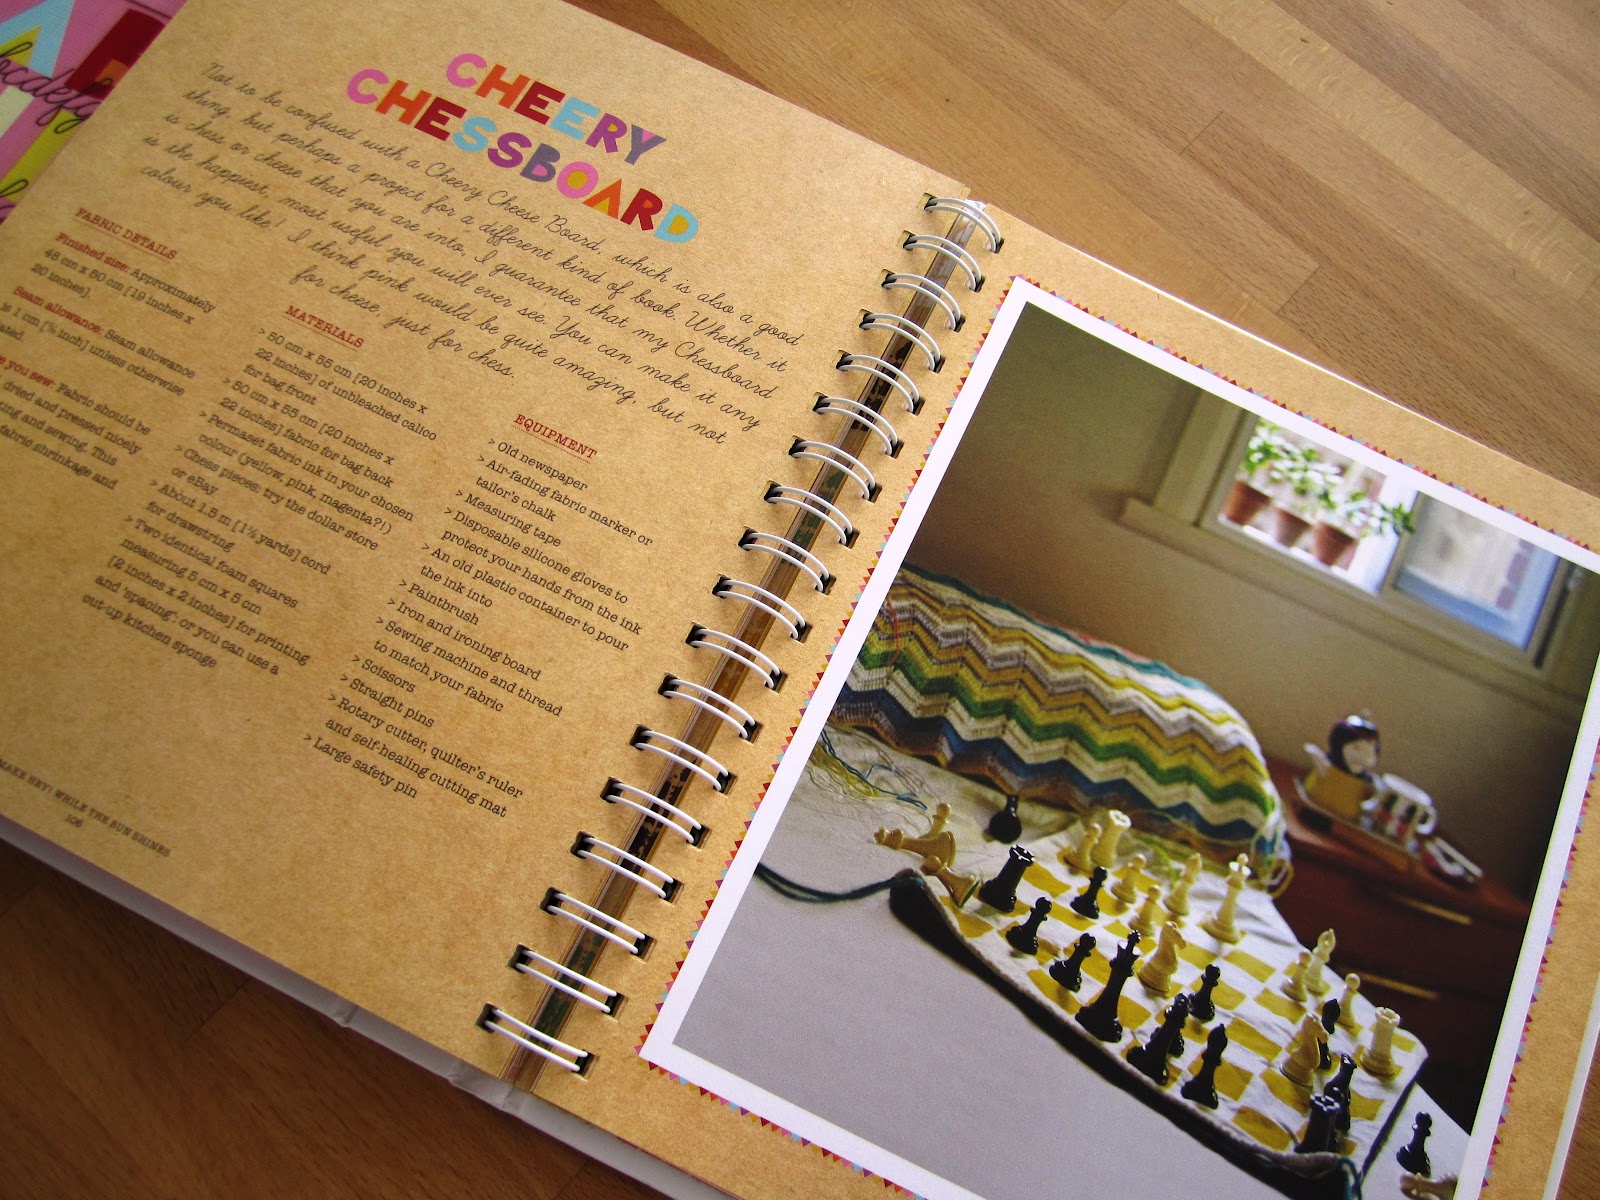 CHEERY
CHESSBOARD
Not to be confused with a Cheery Cheese Board, which is also a good
thing, but perhaps a project for a different kind of book. Whether it
is chess or cheese that you are into, I guarantee that my Chessboard
is the happiest, most useful you will ever see. You can make it any
colour you like! I think pink would be quite amazing, but not
for cheese, just for chess.
FABRIC DETAILS
Finished size: Approximately
48 cm x 50 cm [19 inches x
20 inches].
Seam allowance: Seam allowance
is 1 cm [⅜ inch] unless otherwise
you sew: Fabric should be
dried and pressed nicely
and sewing. This
fabric shrinkage and
MATERIALS
> 50 cm x 55 cm [20 inches x
22 inches] of unbleached calico
for bag front
> 50 cm x 55 cm [20 inches x
22 inches] fabric for bag back
> Permaset fabric ink in your chosen
colour (yellow, pink, magenta?!)
> Chess pieces: try the dollar store
or eBay
> About 1.5 m [1½ yards] cord
for drawstring
> Two identical foam squares
measuring 5 cm x 5 cm
[2 inches x 2 inches] for printing
and 'spacing': or you can use a
cut-up kitchen sponge
EQUIPMENT
> Old newspaper
> Air-fading fabric marker or
tailor's chalk
> Measuring tape
> Disposable silicone gloves to
protect your hands from the ink
> An old plastic container to pour
the ink into
> Paintbrush
> Iron and ironing board
> Sewing machine and thread
to match your fabric
> Scissors
> Straight pins
> Rotary cutter, quilter's ruler
and self-healing cutting mat
> Large safety pin
MAKE HEY! WHILE THE SUN SHINES
106